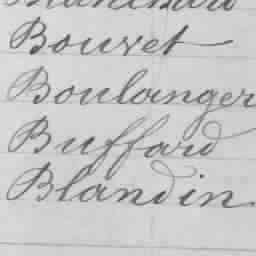 Blanchard
Bouvet
Boulanger
Buffard
Blandin